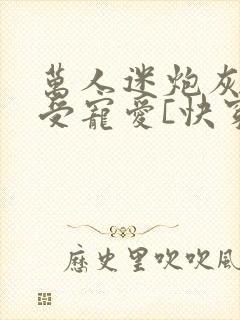 萬人迷炮灰
受寵愛[快穿
歷史里吹吹風